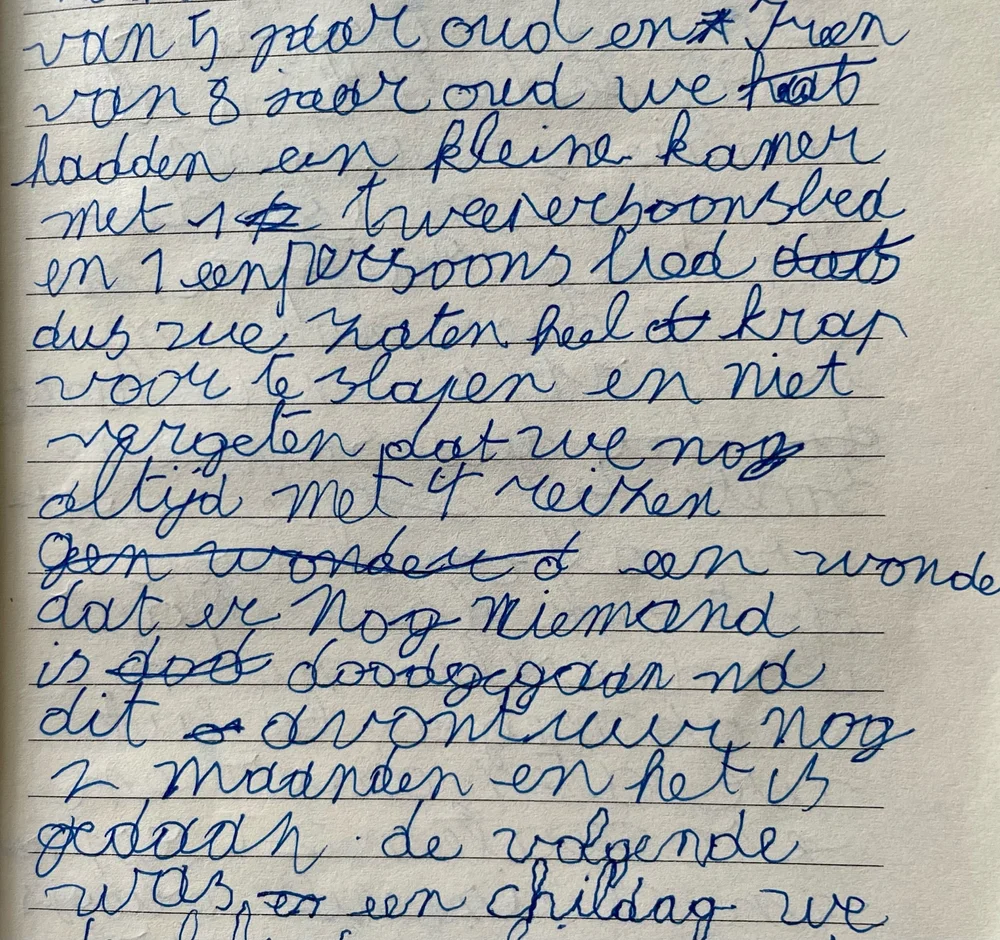 van 5 jaar oud en Juen
van 8 jaar oud we hat
hadden een kleine kamer
met 1 tweepersoonsbed
en 1 eenpersoons bed dats
dus we zaten heel krap
voor te slapen en niet
vergeten dat we nog
altijd met 4 reizen
geen wonder d een wonde
dat er nog niemand
is dood doodgegaan na
dit avontuur nog
2 maanden en het is
gedaan. de volgende
was en een childag we